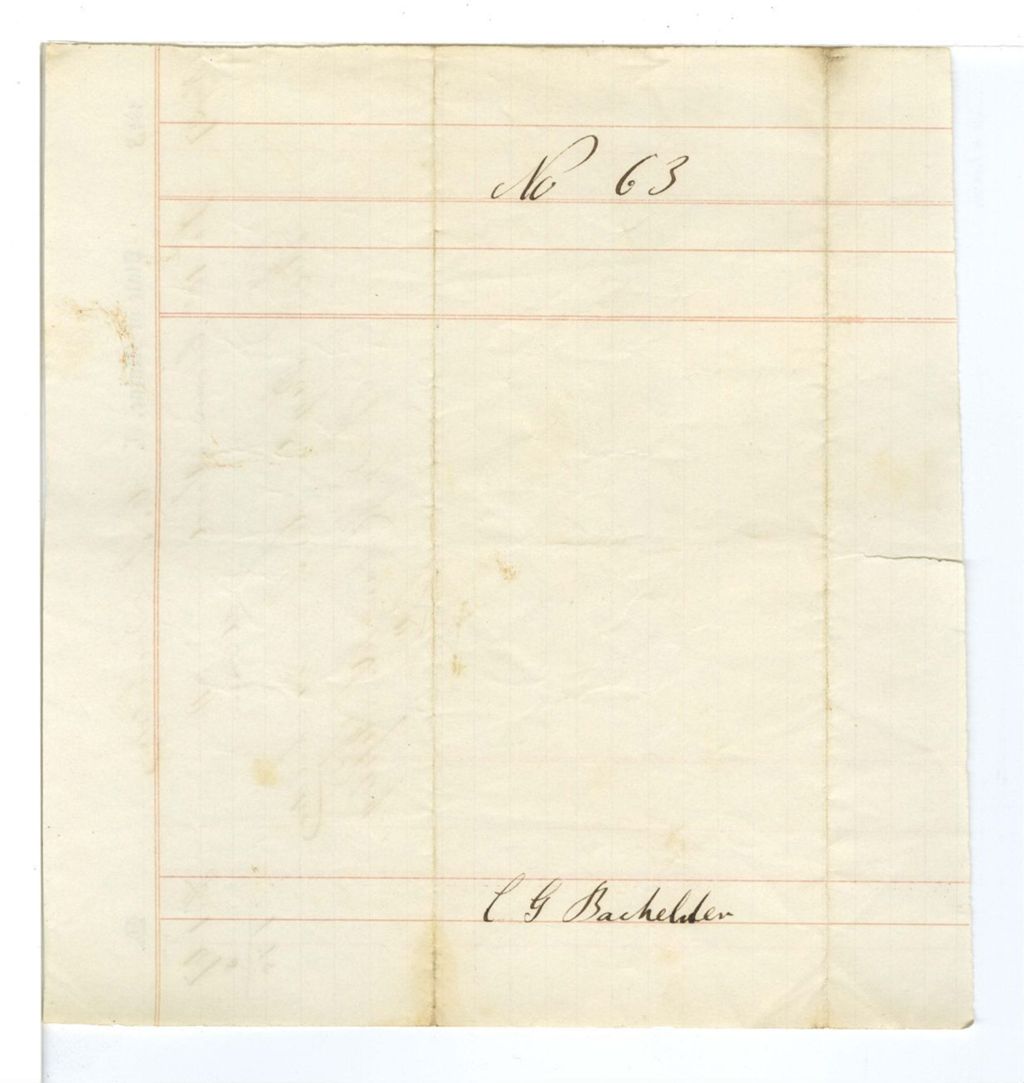 No 63
C G Bachelder